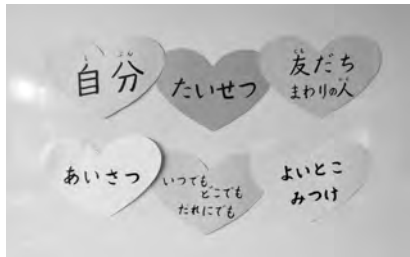 自分
たいせつ
友だち
まわりの人
あいさつ
いつでも
どこでも
だれにでも
よいとこ
みつけ